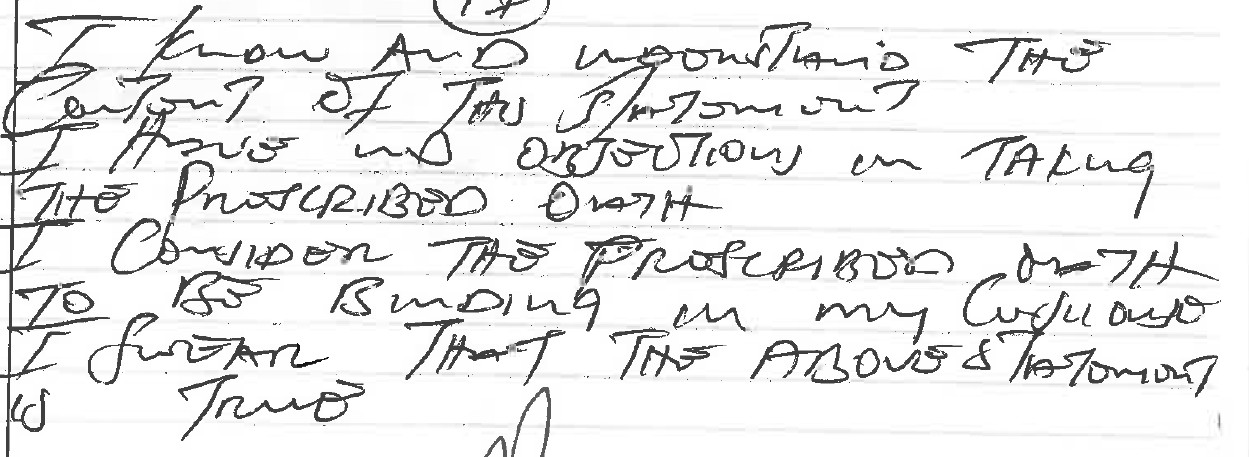 I know AND understand THE
Content of This Statement
I Have no OBJECTIONS in TAKing
THE PRESCRIBED OATH
I CONSIDER THE PRESCRIBED OATH
TO BE BINDING on my Conscience
I SWEAR THAT THE ABOVE STATEMENT
is TRUE